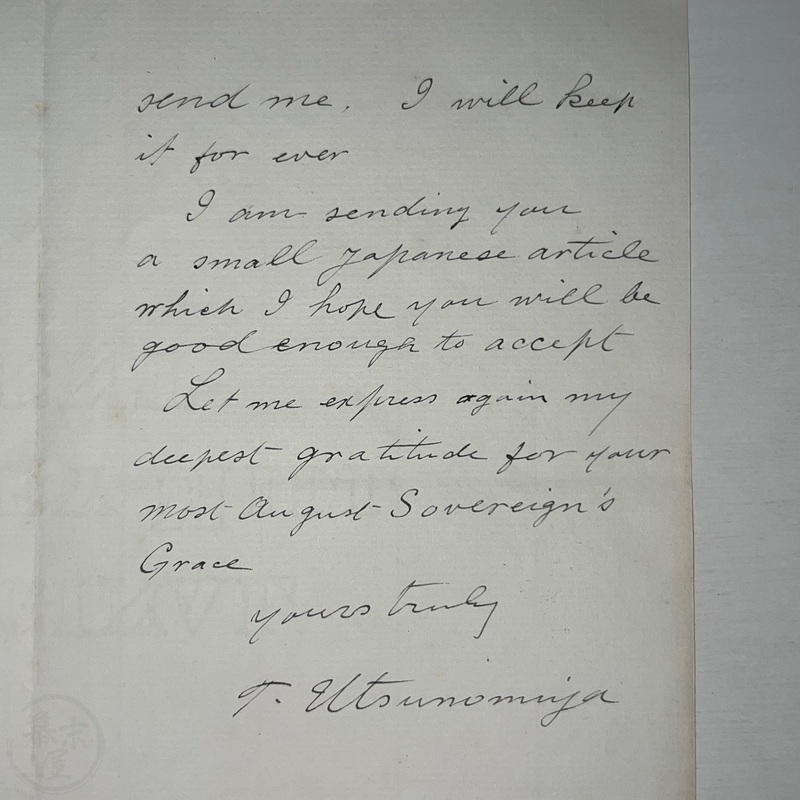 send me. I will keep
it for ever
I am sending you
a small Japanese article
which I hope you will be
good enough to accept
Let me express again my
deepest gratitude for your
most August Sovereign's
Grace
yours truly
T. Utsunomiya
幕末屋